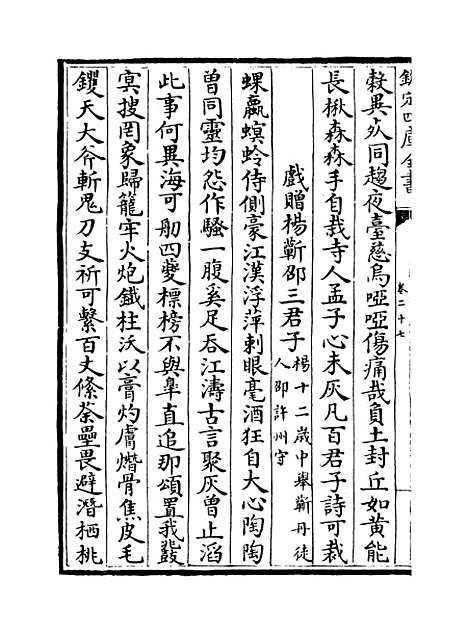 欽定四庫全書
卷二十七
穀異死同趨夜臺慈烏啞啞傷痛哉負土封丘如黃能
長楸森森手自栽寺人孟子心未灰凡百君子詩可裁
戲贈楊蘄邵三君子
楊十二歲中舉蘄丹徒
人邵許州守
蜾蠃螟蛉侍側豪江漢浮萍刺眼毫酒狂自大心陶陶
曾同靈均怨作騷一腹奚足吞江濤古言聚灰曾止滔
此事何異海可舠四夔標榜不與臯直追那頌置我發
冥搜罔象歸籠牢火炮鐵柱沃以膏灼膚熸骨焦皮毛
钁天大斧斬鬼刀支祈可繫百丈絛荼壘畏避潛栖桃